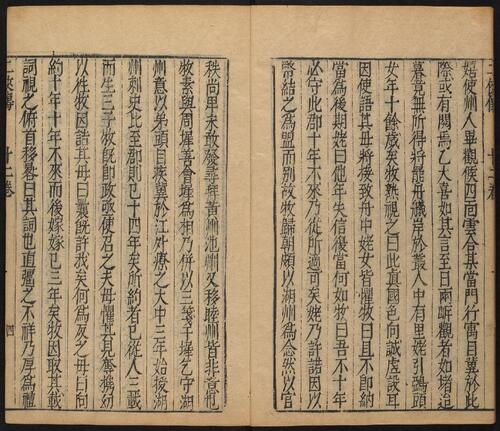 嬉使州人畢觀候四面雲合某當閒行寓目冀於此
際或有閱焉乙大喜如其言至日兩岸觀者如堵迨
暮竟無所得將罷舟艤岸於叢人中有里姥引鴉頭
女年十餘歲矣牧熟視之曰此真國色向誠虛設耳
因使語其母將接致舟中姥女皆懼牧曰且不即納
當為後期姥曰他年失信復當何如牧曰吾不十年
必守此郡十年不來乃從所適可矣姥乃許諾因以
幣結之為盟而別故牧歸朝頗以湖州為念然以官
秩尚卑未敢發尋拜黃州池州又移睦州皆非意也
牧素與周墀善會墀為相乃併以三箋干墀乞守湖
州意以弟顗目疾冀於江外療之大中三年始授湖
州刺史比至郡則已十四年矣所約者已從人三載
而生三子牧既即政亟使召之夫母懼其見奪攜幼
以往牧因詰其母曰曩既許我矣何為反之母曰向
約十年十年不來而後嫁嫁已三年矣牧因取其載
詞視之俯首移晷曰其詞也直彊之不祥乃厚為禮
十二卷
四